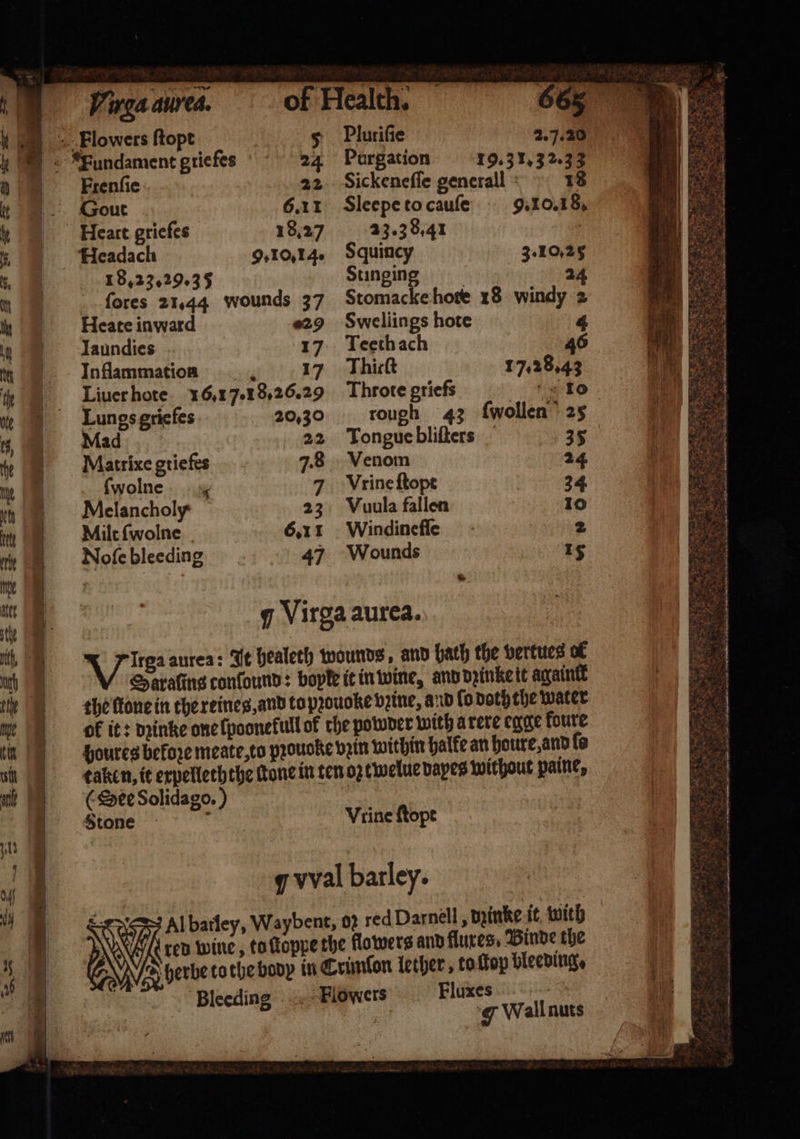 Virga aurea. of Health. 665
Flowers ſtopt 5
*Fundament griefes 24
Frenſie 22
Gout 6,11
Heart griefes 18,27
Headach 9,10,14.
18,23.29.35
ſores 21.44 wounds 37
Heate inward 29
Iaundies 17
Inflammation 17
Liuer hote 16,17.18,26.29
Lungs griefes 20,30
Mad 22
Matrixe griefes 7.8
ſwolne 7
Melancholy 23
Milt ſwolne 6,11
Noſe bleeding 47
Pluriſie 2.7.20
Purgation 19.31,32.33
Sickeneſſe generall 18
Sleepe to cauſe 9.10.18,
23.38,41
Squincy 3.10,25
Stinging 24
Stomacke hote 18 windy 2
Swellings hote 4
Teethach 46
Thirſt 17,28,43
Throte griefs 10
rough 43 ſwollen 25
Tongue bliſters 35
Venom 24
Vrine ſtopt 34
Vuula fallen 10
Windineſſe 2
Wounds 15
¶ Virga aurea.
VIrga aurea: It healeth wounds, and hath the vertues of
Saraſins conſound: boyle it in wine, and drinke it againſt
the ſtone in the reines, and to prouoke vrine, and ſo doth the water
of it: drinke one ſpoonefull of the powder with a rere egge foure
houres before meate, to prouoke vrin within halfe an houre, and ſo
taken, it expelleth the ſtone in ten or twelue dayes without paine,
(See Solidago.)
Stone Vrine ſtopt
¶ vval barley.
WAl barley, Waybent, or red Darnell, drinke it with
red wine, to ſtoppe the flowers and fluxes. Binde the
herbe to the body in Crimſon lether, to ſtop bleeding.
Bleeding Flowers Fluxes
¶ Wall nuts